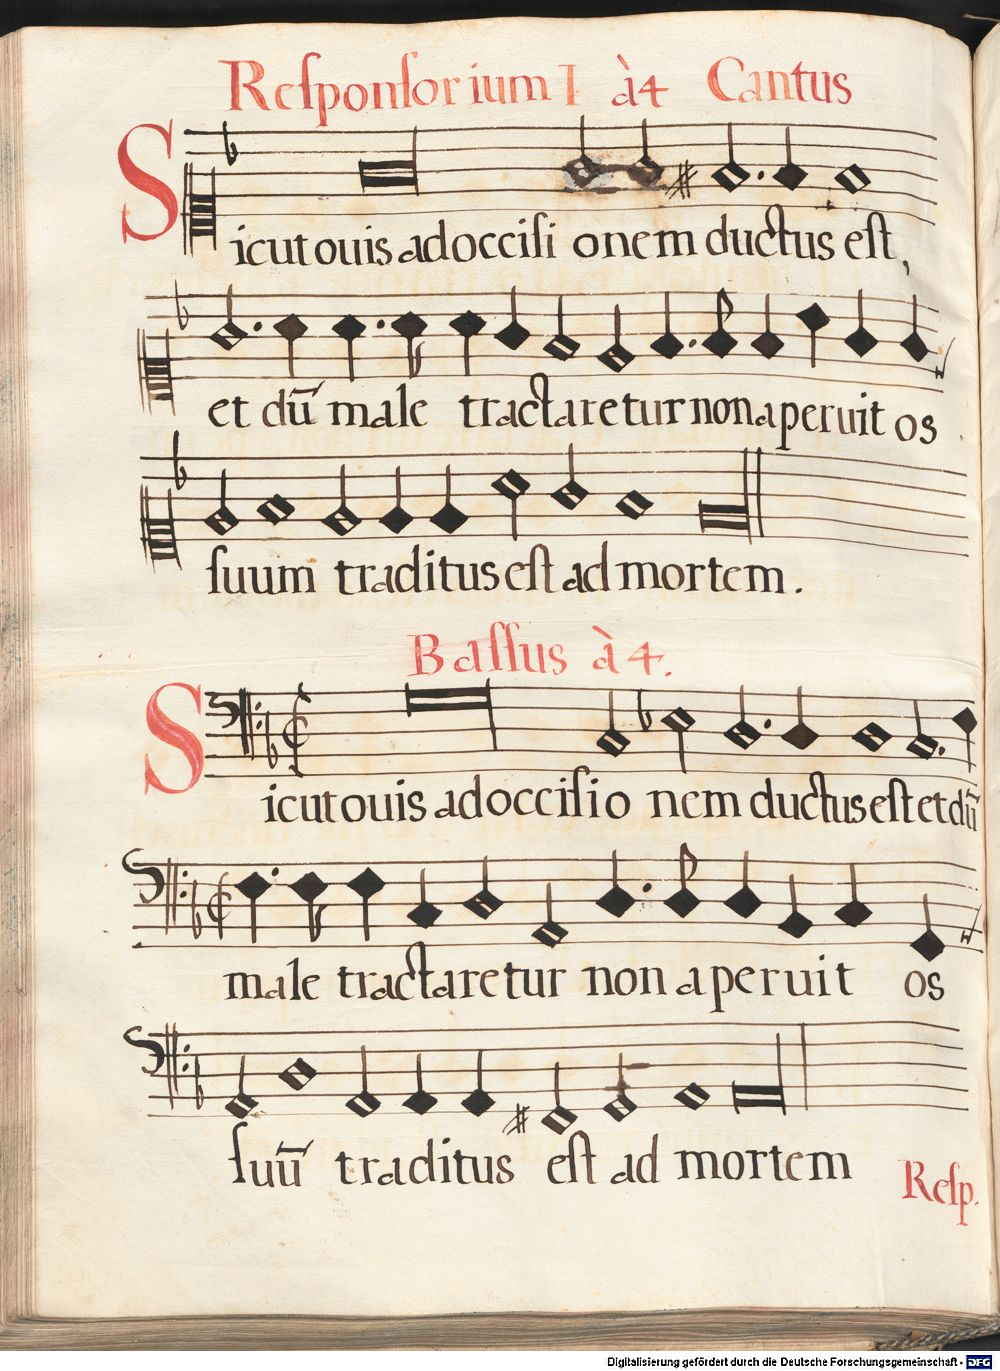 Reſponſorium I à4 Cantus
Sicut ouis ad occiſionem ductus eſt,
et dū male tractaretur non aperuit os
ſuum traditus eſt ad mortem.
Baſſus à4.
Sicut ouis ad occiſionem ductus eſt et dū
male tractaretur non aperuit os
ſuū traditus eſt ad mortem
Reſp.
Digitalisierung gefördert durch die Deutsche Forschungsgemeinschaft - DFG